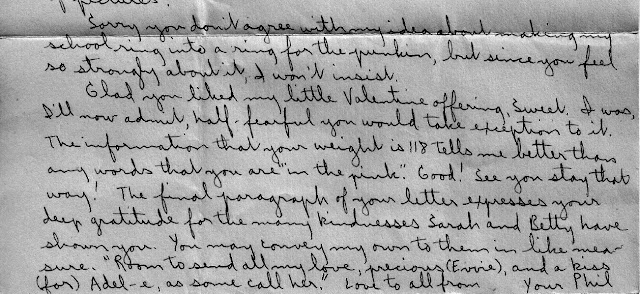 pictures.
Sorry you don't agree with my idea about making my
school ring into a ring for the punkin, but since you feel
so strongly about it, I won't insist.
Glad you liked my little Valentine offering, Sweet. I was,
I'll now admit, half-fearful you would take exception to it.
The information that your weight is 118 tells me better than
any words that you are "in the pink". Good! See you stay that
way! The final paragraph of your letter expresses your
deep gratitude for the many kindnesses Sarah and Betty have
shown you. You may convey my own to them in like mea-
sure. "Room to send all my love, precious (Evvie), and a kiss
(for) Adel-e, as some call her." Love to all from Your Phil